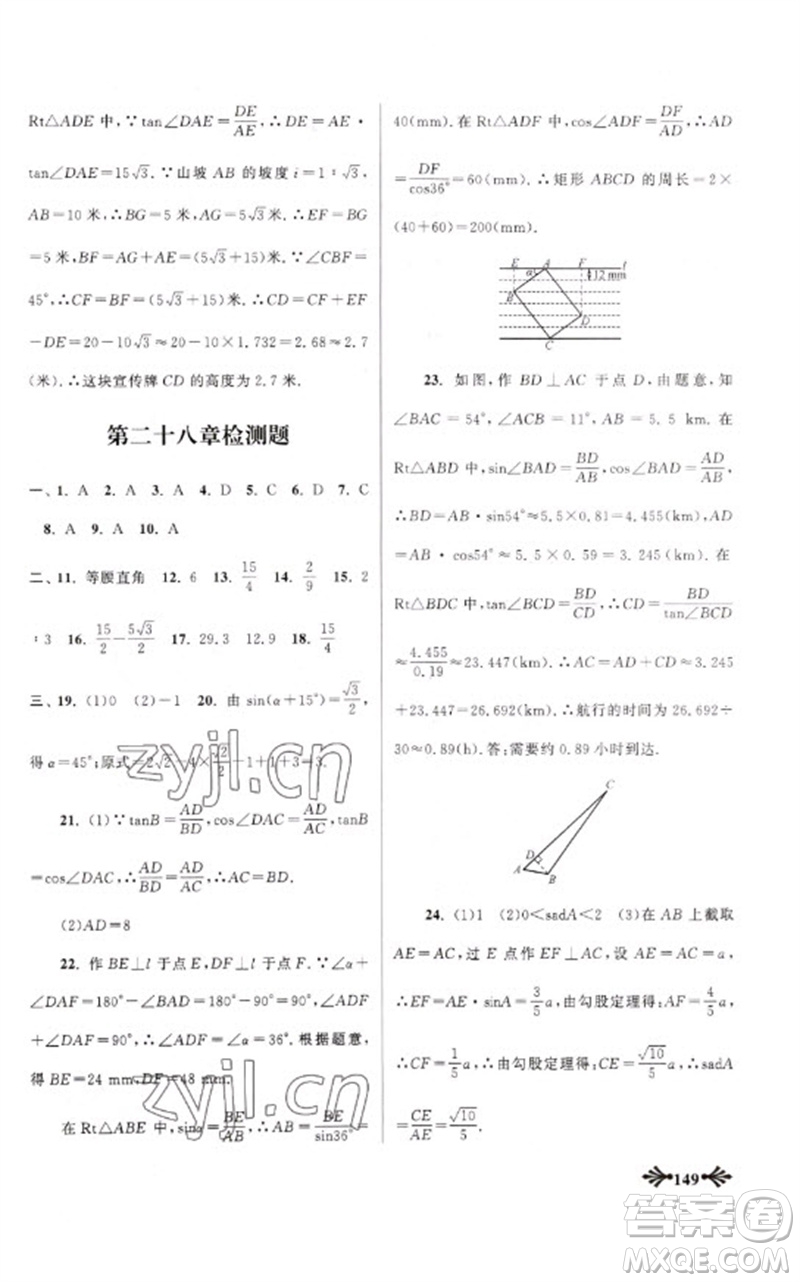 Rt△ADE 中,∵tan∠DAE=DE/AE,∴DE=AE·
tan∠DAE=15√3.∵山坡 AB 的坡度 i=1∶√3,
AB=10 米,∴BG=5 米,AG=5√3 米,∴EF=BG
=5 米,BF=AG+AE=(5√3+15)米.∵∠CBF=
45°,∴CF=BF=(5√3+15)米.∴CD=CF+EF
-DE=20-10√3≈20-10×1.732=2.68≈2.7
(米).∴这块宣传牌 CD 的高度为 2.7 米.
第二十八章检测题
一、1. A 2. A 3. A 4. D 5. C 6. D 7. C
8. A 9. A 10. A
二、11. 等腰直角 12. 6 13. 15/4 14. 2/9 15. 2
∶3 16. 15/2-5√3/2 17. 29.3 12.9 18. 15/4
三、19. (1)0 (2)-1 20. 由 sin(α+15°)=√3/2,
得 α=45°;原式=2√2-4×√2/2-1+1+3=3.
21. (1)∵tanB=AD/BD,cos∠DAC=AD/AC,tanB
=cos∠DAC,∴AD/BD=AD/AC,∴AC=BD.
(2)AD=8
22. 作 BE⊥l 于点 E,DF⊥l 于点 F.∵∠α+
∠DAF=180°-∠BAD=180°-90°=90°,∠ADF
+∠DAF=90°,∴∠ADF=∠α=36°.根据题意,
得 BE=24 mm,DF=48 mm.
在 Rt△ABE 中,sinα=BE/AB,∴AB=BE/sin36°=
40(mm).在 Rt△ADF 中,cos∠ADF=DF/AD,∴AD
=DF/cos36°=60(mm).∴矩形 ABCD 的周长=2×
(40+60)=200(mm).
E A F l
α 12 mm
B
D
C
23. 如图,作 BD⊥AC 于点 D,由题意,知
∠BAC=54°,∠ACB=11°,AB=5.5 km.在
Rt△ABD 中,sin∠BAD=BD/AB,cos∠BAD=AD/AB,
∴BD=AB·sin54°≈5.5×0.81=4.455(km),AD
=AB·cos54°≈5.5×0.59=3.245(km).在
Rt△BDC 中,tan∠BCD=BD/CD,∴CD=BD/tan∠BCD
≈4.455/0.19≈23.447(km),∴AC=AD+CD=3.245
+23.447=26.692(km).∴航行的时间为 26.692÷
30≈0.89(h).答:需要约 0.89 小时到达.
C
D
A B
24. (1)1 (2)0<sadA<2 (3)在 AB 上截取
AE=AC,过 E 点作 EF⊥AC,设 AE=AC=a,
∴EF=AE·sinA=3/5a,由勾股定理得:AF=4/5a,
∴CF=1/5a,∴由勾股定理得:CE=√10/5a,∴sadA
=CE/AE=√10/5.
149
zyjl.cn
zyjl.cn
答案卷
MXQE.COM